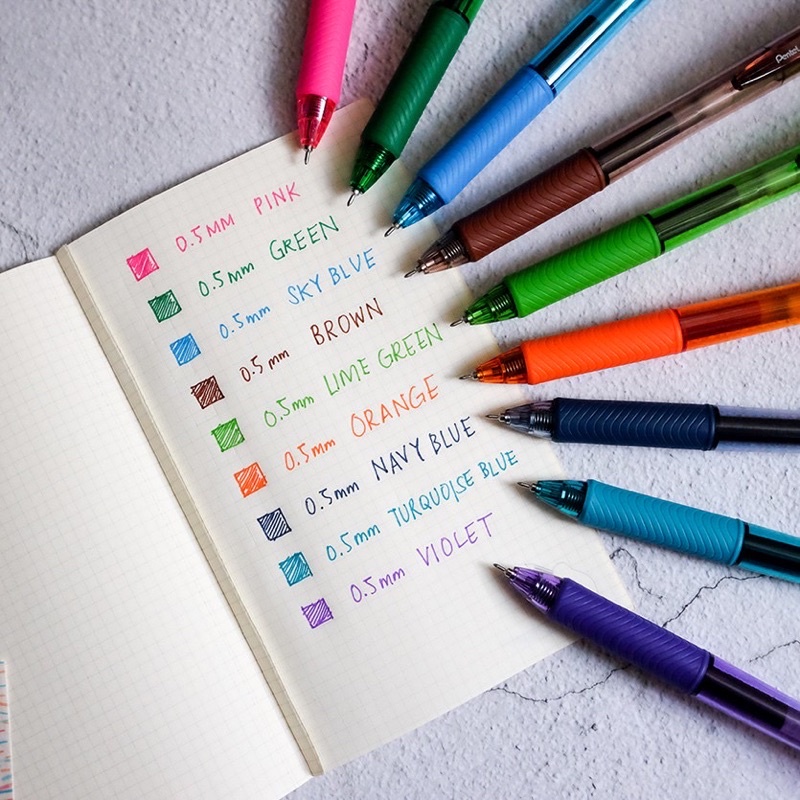 Pentel
0.5MM PINK
0.5mm GREEN
0.5mm SKY BLUE
0.5mm BROWN
0.5mm LIME GREEN
0.5mm ORANGE
0.5mm NAVY BLUE
0.5mm TURQUOISE BLUE
0.5mm VIOLET